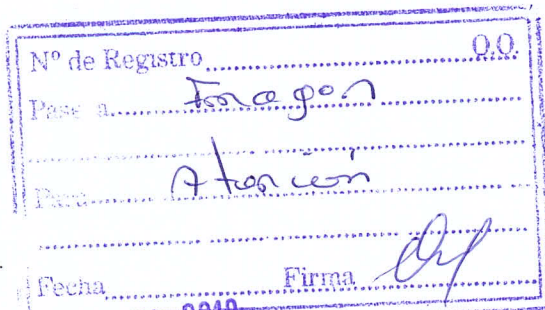 Nº de Registro O.O.
Pase a Imagen
Para Atención
Fecha Firma
2019